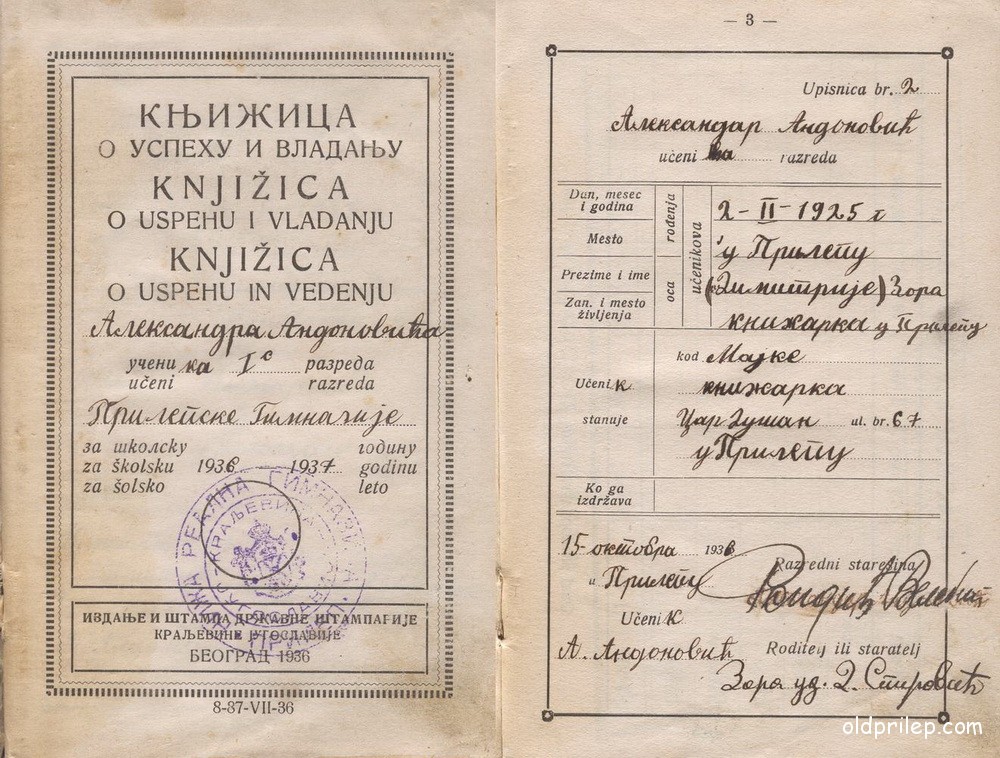 КЊИЖИЦА
О УСПЕХУ И ВЛАДАЊУ
KNJIŽICA
O USPEHU I VLADANJU
KNJIŽICA
O USPEHU IN VEDENJU
Александра Андоновића
учени ка I с разреда
učeni razreda
Прилепске Гимназије
за школску годину
za školsku 1936 1937 godinu
za šolsko leto
РЕАЛНА ГИМНАЗИЈА
КРАЉЕВИНА ЈУГОСЛАВИЈА
ПРИЛЕП
ИЗДАЊЕ И ШТАМПА ДРЖАВНЕ ШТАМПАРИЈЕ
КРАЉЕВИНЕ ЈУГОСЛАВИЈЕ
БЕОГРАД 1936
8-37-VII-36
— 3 —
Upisnica br. 2
Александар Андоновић
učeni razreda
Dan, mesec i godina
Mesto
rođenja
Prezime i ime
Zan. i mesto življenja
oca
učenikova
2-II-1925 г
у Прилепу
(Димитрије) Зора
книжарка у Прилепу
Učeni к
stanuje
kod Мајке
книжарка
Цар Душан ul. br. 67
у Прилепу
Ko ga izdržava
15 октобра 1936
и Прилепу
Razredni starešina
Učeni к
А. Андоновић
Roditelj ili staratelj
Зора уд. Д. Спировић
oldprilep.com